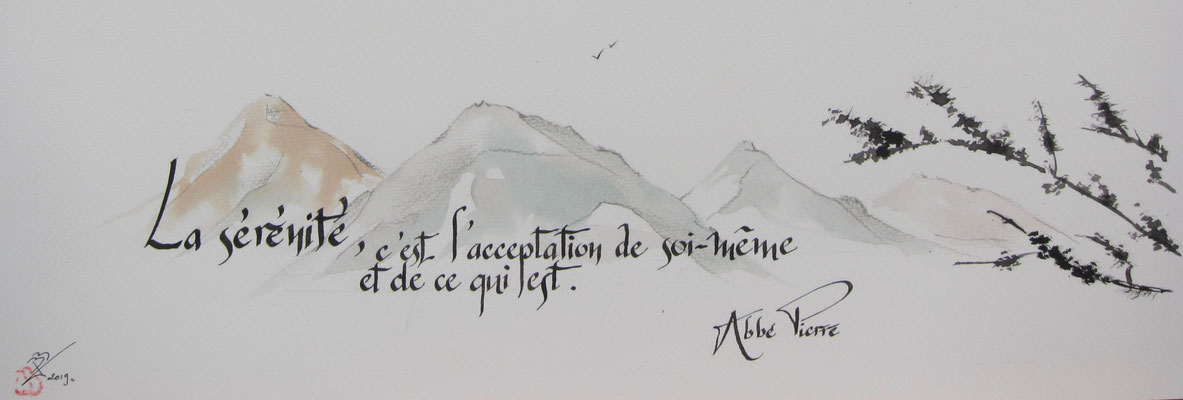 La sérénité, c'est l'acceptation de soi-même
et de ce qui est.
Abbé Pierre
2019